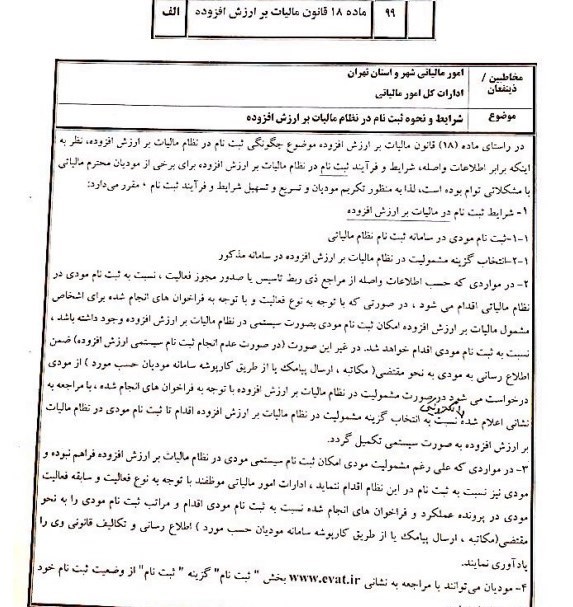 ماده ۱۸ قانون مالیات بر ارزش افزوده ۹۹ الف
مخاطبین / ذینفعان
امور مالیاتی شهر و استان تهران
ادارات کل امور مالیاتی
موضوع
شرایط و نحوه ثبت نام در نظام مالیات بر ارزش افزوده
در راستای ماده (۱۸) قانون مالیات بر ارزش افزوده موضوع چگونگی ثبت نام در نظام مالیات بر ارزش افزوده، نظر به
اینکه برابر اطلاعات واصله، شرایط و فرآیند ثبت نام در نظام مالیات بر ارزش افزوده، برای برخی از مودیان محترم مالیاتی
با مشکلاتی توام بوده است، لذا به منظور تکریم مودیان و تسریع و تسهیل شرایط و فرآیند ثبت نام ، مقرر می‌دارد:
۱- شرایط ثبت نام در مالیات بر ارزش افزوده
۱-۱-ثبت نام مودی در سامانه ثبت نام نظام مالیاتی
۲-۱-انتخاب گزینه مشمولیت در نظام مالیات بر ارزش افزوده در سامانه مذکور
۲- در مواردی که حسب اطلاعات واصله از مراجع ذی ربط تاسیس یا صدور مجوز فعالیت ، نسبت به ثبت نام مودی در
نظام مالیاتی اقدام می شود ، در صورتی که با توجه به نوع فعالیت و با توجه به فراخوان های انجام شده برای اشخاص
مشمول مالیات بر ارزش افزوده امکان ثبت نام مودی بصورت سیستمی در نظام مالیات بر ارزش افزوده وجود داشته باشد ،
نسبت به ثبت نام مودی اقدام خواهد شد. در غیر این صورت (در صورت عدم انجام ثبت نام سیستمی ارزش افزوده) ضمن
اطلاع رسانی به مودی به نحو مقتضی( مکاتبه ، ارسال پیامک یا از طریق کارپوشه سامانه مودیان حسب مورد ) از مودی
درخواست می شود درصورت مشمولیت در نظام مالیات بر ارزش افزوده با توجه به فراخوان های انجام شده ، با مراجعه به
نشانی اعلام شده نسبت به انتخاب گزینه مشمولیت در نظام مالیات بر ارزش افزوده اقدام تا ثبت نام مودی در نظام مالیات
بر ارزش افزوده به صورت سیستمی تکمیل گردد.
۳- در مواردی که علی رغم مشمولیت مودی امکان ثبت نام سیستمی مودی در نظام مالیات بر ارزش افزوده فراهم نبوده و
مودی نیز نسبت به ثبت نام در این نظام اقدام ننماید ، ادارات امور مالیاتی موظفند با توجه به نوع فعالیت و سابقه فعالیت
مودی در پرونده عملکرد و فراخوان های انجام شده نسبت به ثبت نام مودی اقدام و مراتب ثبت نام مودی را به نحو
مقتضی(مکاتبه ، ارسال پیامک یا از طریق کارپوشه سامانه مودیان حسب مورد ) اطلاع رسانی و تکالیف قانونی وی را
یادآوری نمایند.
۴- مودیان می‌توانند با مراجعه به نشانی www.evat.ir بخش " ثبت نام" گزینه " ثبت نام" از وضعیت ثبت نام خود